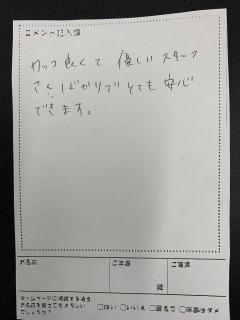 コメント記入欄
カッコ良くて 優しいスタッフ
さんばかりで とても 安心
できます。
お名前 ご年齢 ご職業
歳
ホームページに掲載する場合
お名前を載せてもよろしい
でしょうか？ □はい □いいえ □匿名希望